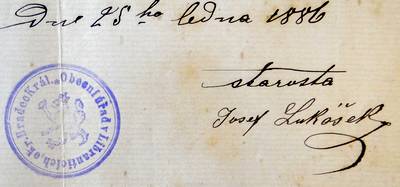 Dne 25ho ledna 1886
starosta
Josef Lukášek
Obecní úřad v Libranticích okr. Hradec Král.